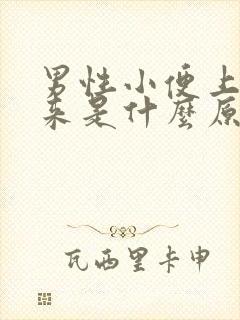 男性小便上
来是什麼原
瓦西里卡申